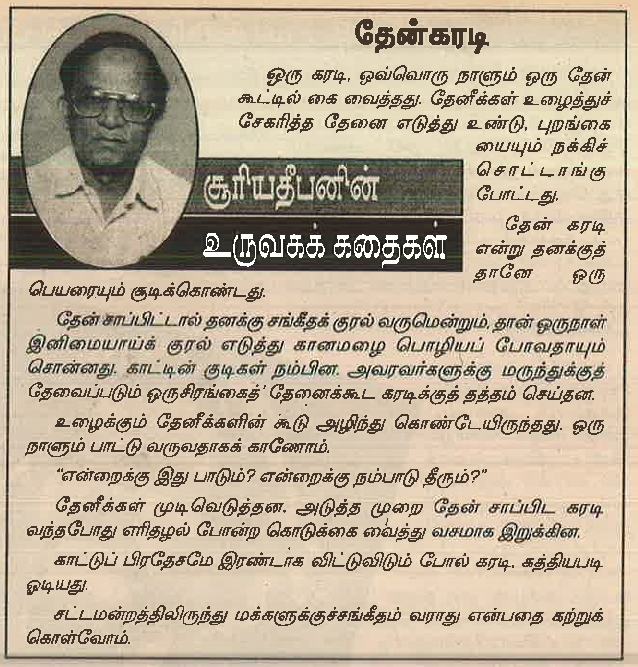 தேன்கரடி
ஒரு கரடி, ஒவ்வொரு நாளும் ஒரு தேன்
கூட்டில் கை வைத்தது. தேனீக்கள் உழைத்துச்
சேகரித்த தேனை எடுத்து உண்டு, புறங்கை
யையும் நக்கிச்
சொட்டாங்கு
போட்டது.
சூரியதீபனின்
உருவகக் கதைகள்
தேன் கரடி
என்று தனக்குத்
தானே ஒரு
பெயரையும் சூடிக்கொண்டது.
தேன் சாப்பிட்டால் தனக்கு சங்கீதக் குரல் வருமென்றும், தான் ஒருநாள்
இனிமையாய்க் குரல் எடுத்து கானமழை பொழியப் போவதாயும்
சொன்னது. காட்டின் குடிகள் நம்பின. அவரவர்களுக்கு மருந்துக்குத்
தேவைப்படும் ஒருசிரங்கைத்' தேனைக்கூட கரடிக்குத் தத்தம் செய்தன.
உழைக்கும் தேனீக்களின் கூடு அழிந்து கொண்டேயிருந்தது. ஒரு
நாளும் பாட்டு வருவதாகக் காணோம்.
“என்றைக்கு இது பாடும்? என்றைக்கு நம்பாடு தீரும்?”
தேனீக்கள் முடிவெடுத்தன. அடுத்த முறை தேன் சாப்பிட கரடி
வந்தபோது எரிதழல் போன்ற கொடுக்கை வைத்து வசமாக இறுக்கின.
காட்டுப் பிரதேசமே இரண்டாக விட்டுவிடும் போல் கரடி, கத்தியபடி
ஓடியது.
சட்டமன்றத்திலிருந்து மக்களுக்குச்சங்கீதம் வராது என்பதை கற்றுக்
கொள்வோம்.